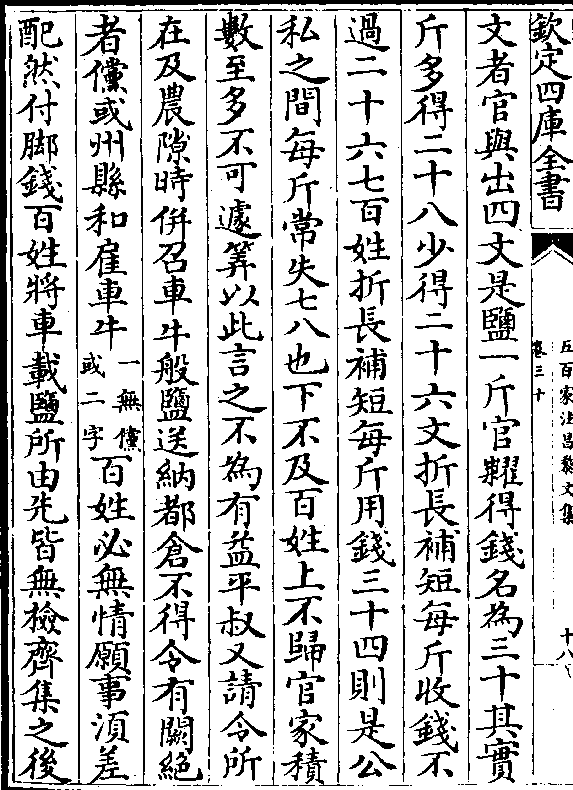 欽定四庫全書
五百家注昌黎文集
卷三十
十八
文者官與出四文是鹽一斤官糶得錢名為三十其實
斤多得二十八少得二十六文折長補短每斤收錢不
過二十六七百姓折長補短每斤用錢三十四則是公
私之間每斤常失七八也下不及百姓上不歸官家積
數至多不可遽筭以此言之不為有益平叔又請令所
在及農隙時併召車牛般鹽送納都倉不得令有闕絶
者儻或州縣和雇車牛一無儻或二字百姓必無情願事湏差
配然付脚錢百姓將車載鹽所由先皆無檢齊集之後